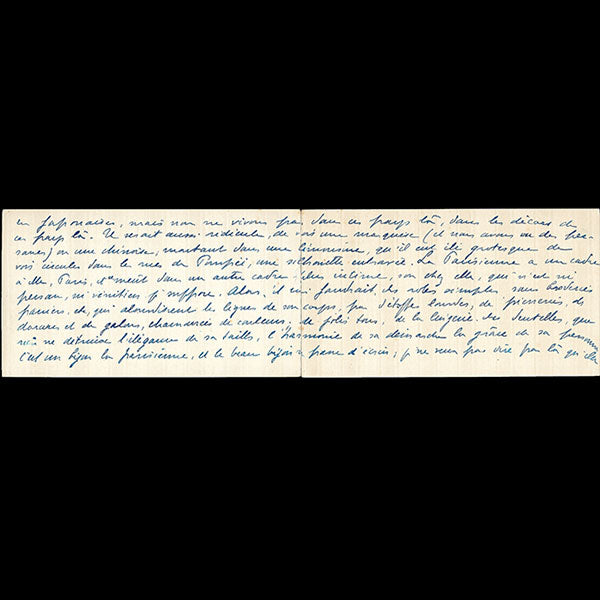 en Japonaises, mais nous ne vivons pas dans ces pays là, dans les décors de
ces pays là. Il serait aussi ridicule, de voir une marquise (et nous avons vu des per-
sanes) ou une chinoise, montant dans une limousine, qu'il eut été grotesque de
voir circuler dans les rues de Pompéi, une silhouette entravée. La Parisienne a un cadre
à elle, Paris, et meut dans un autre cadre plus intime, son chez elle, qui n'est ni
persan, ni vénitien je suppose. Alors, il lui faudrait des robes simples sans broderies
paniers, etc, qui alourdissent les lignes de son corps, pas d'étoffes lourdes, de pierreries, de
dorures et de galons, chamarrées de couleurs. de jolis tons, de la lingerie. des dentelles, que
rien ne détruise l'élégance de sa taille, l'harmonie de sa démarche la grâce de sa personne
C'est un bijou la parisienne, et le beau bijou se passe d'écrin; je ne veux pas dire par là qu'elle